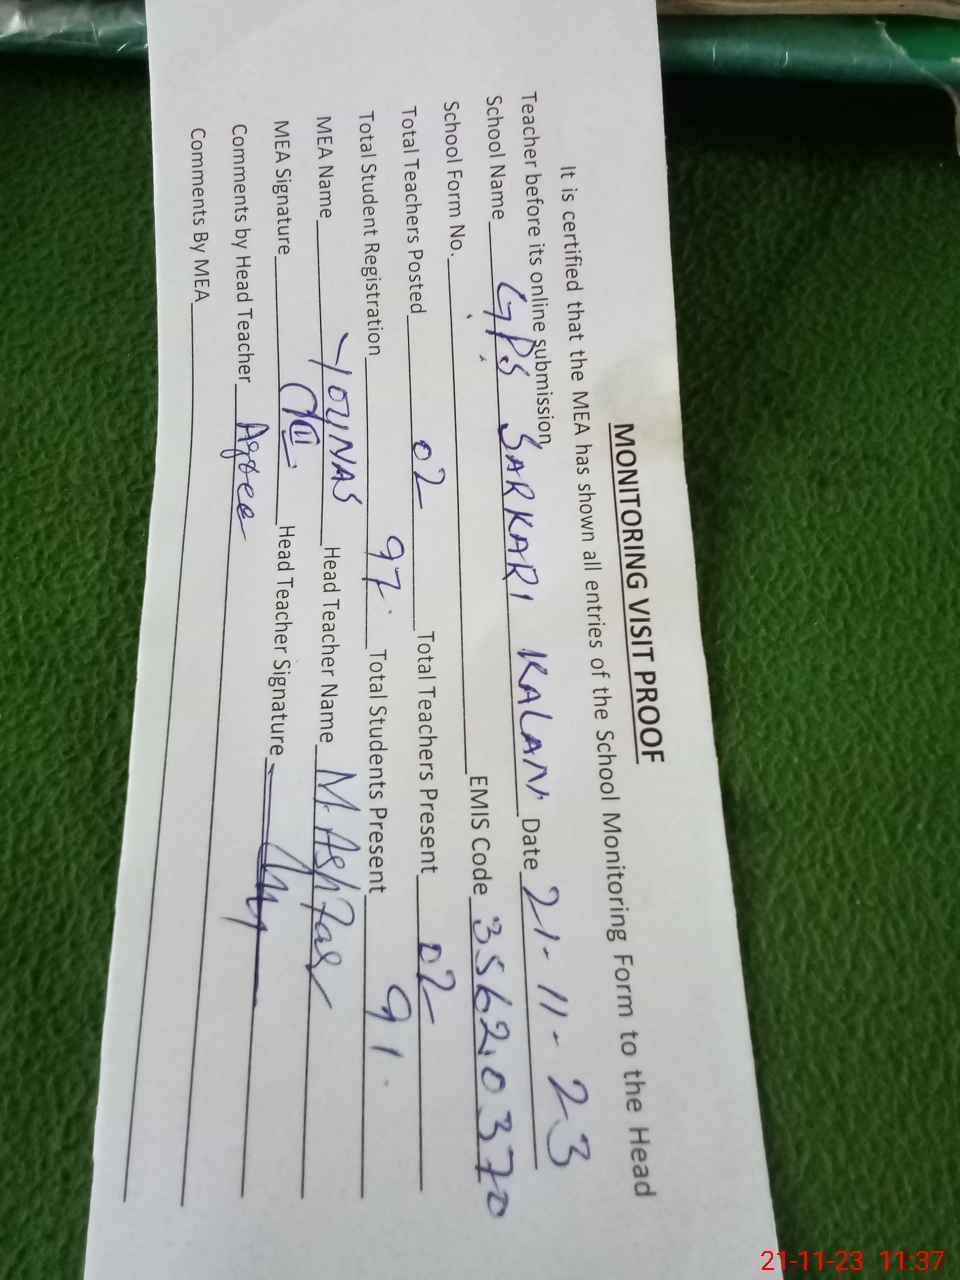 MONITORING VISIT PROOF
It is certified that the MEA has shown all entries of the School Monitoring Form to the Head
Teacher before its online submission
School Name GPS SARKARI KALAN Date 21-11-23
School Form No. EMIS Code 35620370
Total Teachers Posted 02 Total Teachers Present 02
Total Student Registration 97 Total Students Present 91
MEA Name YOUNAS Head Teacher Name M. Ashfaq
MEA Signature Head Teacher Signature
Comments by Head Teacher Agree
Comments By MEA
21-11-23 11:37